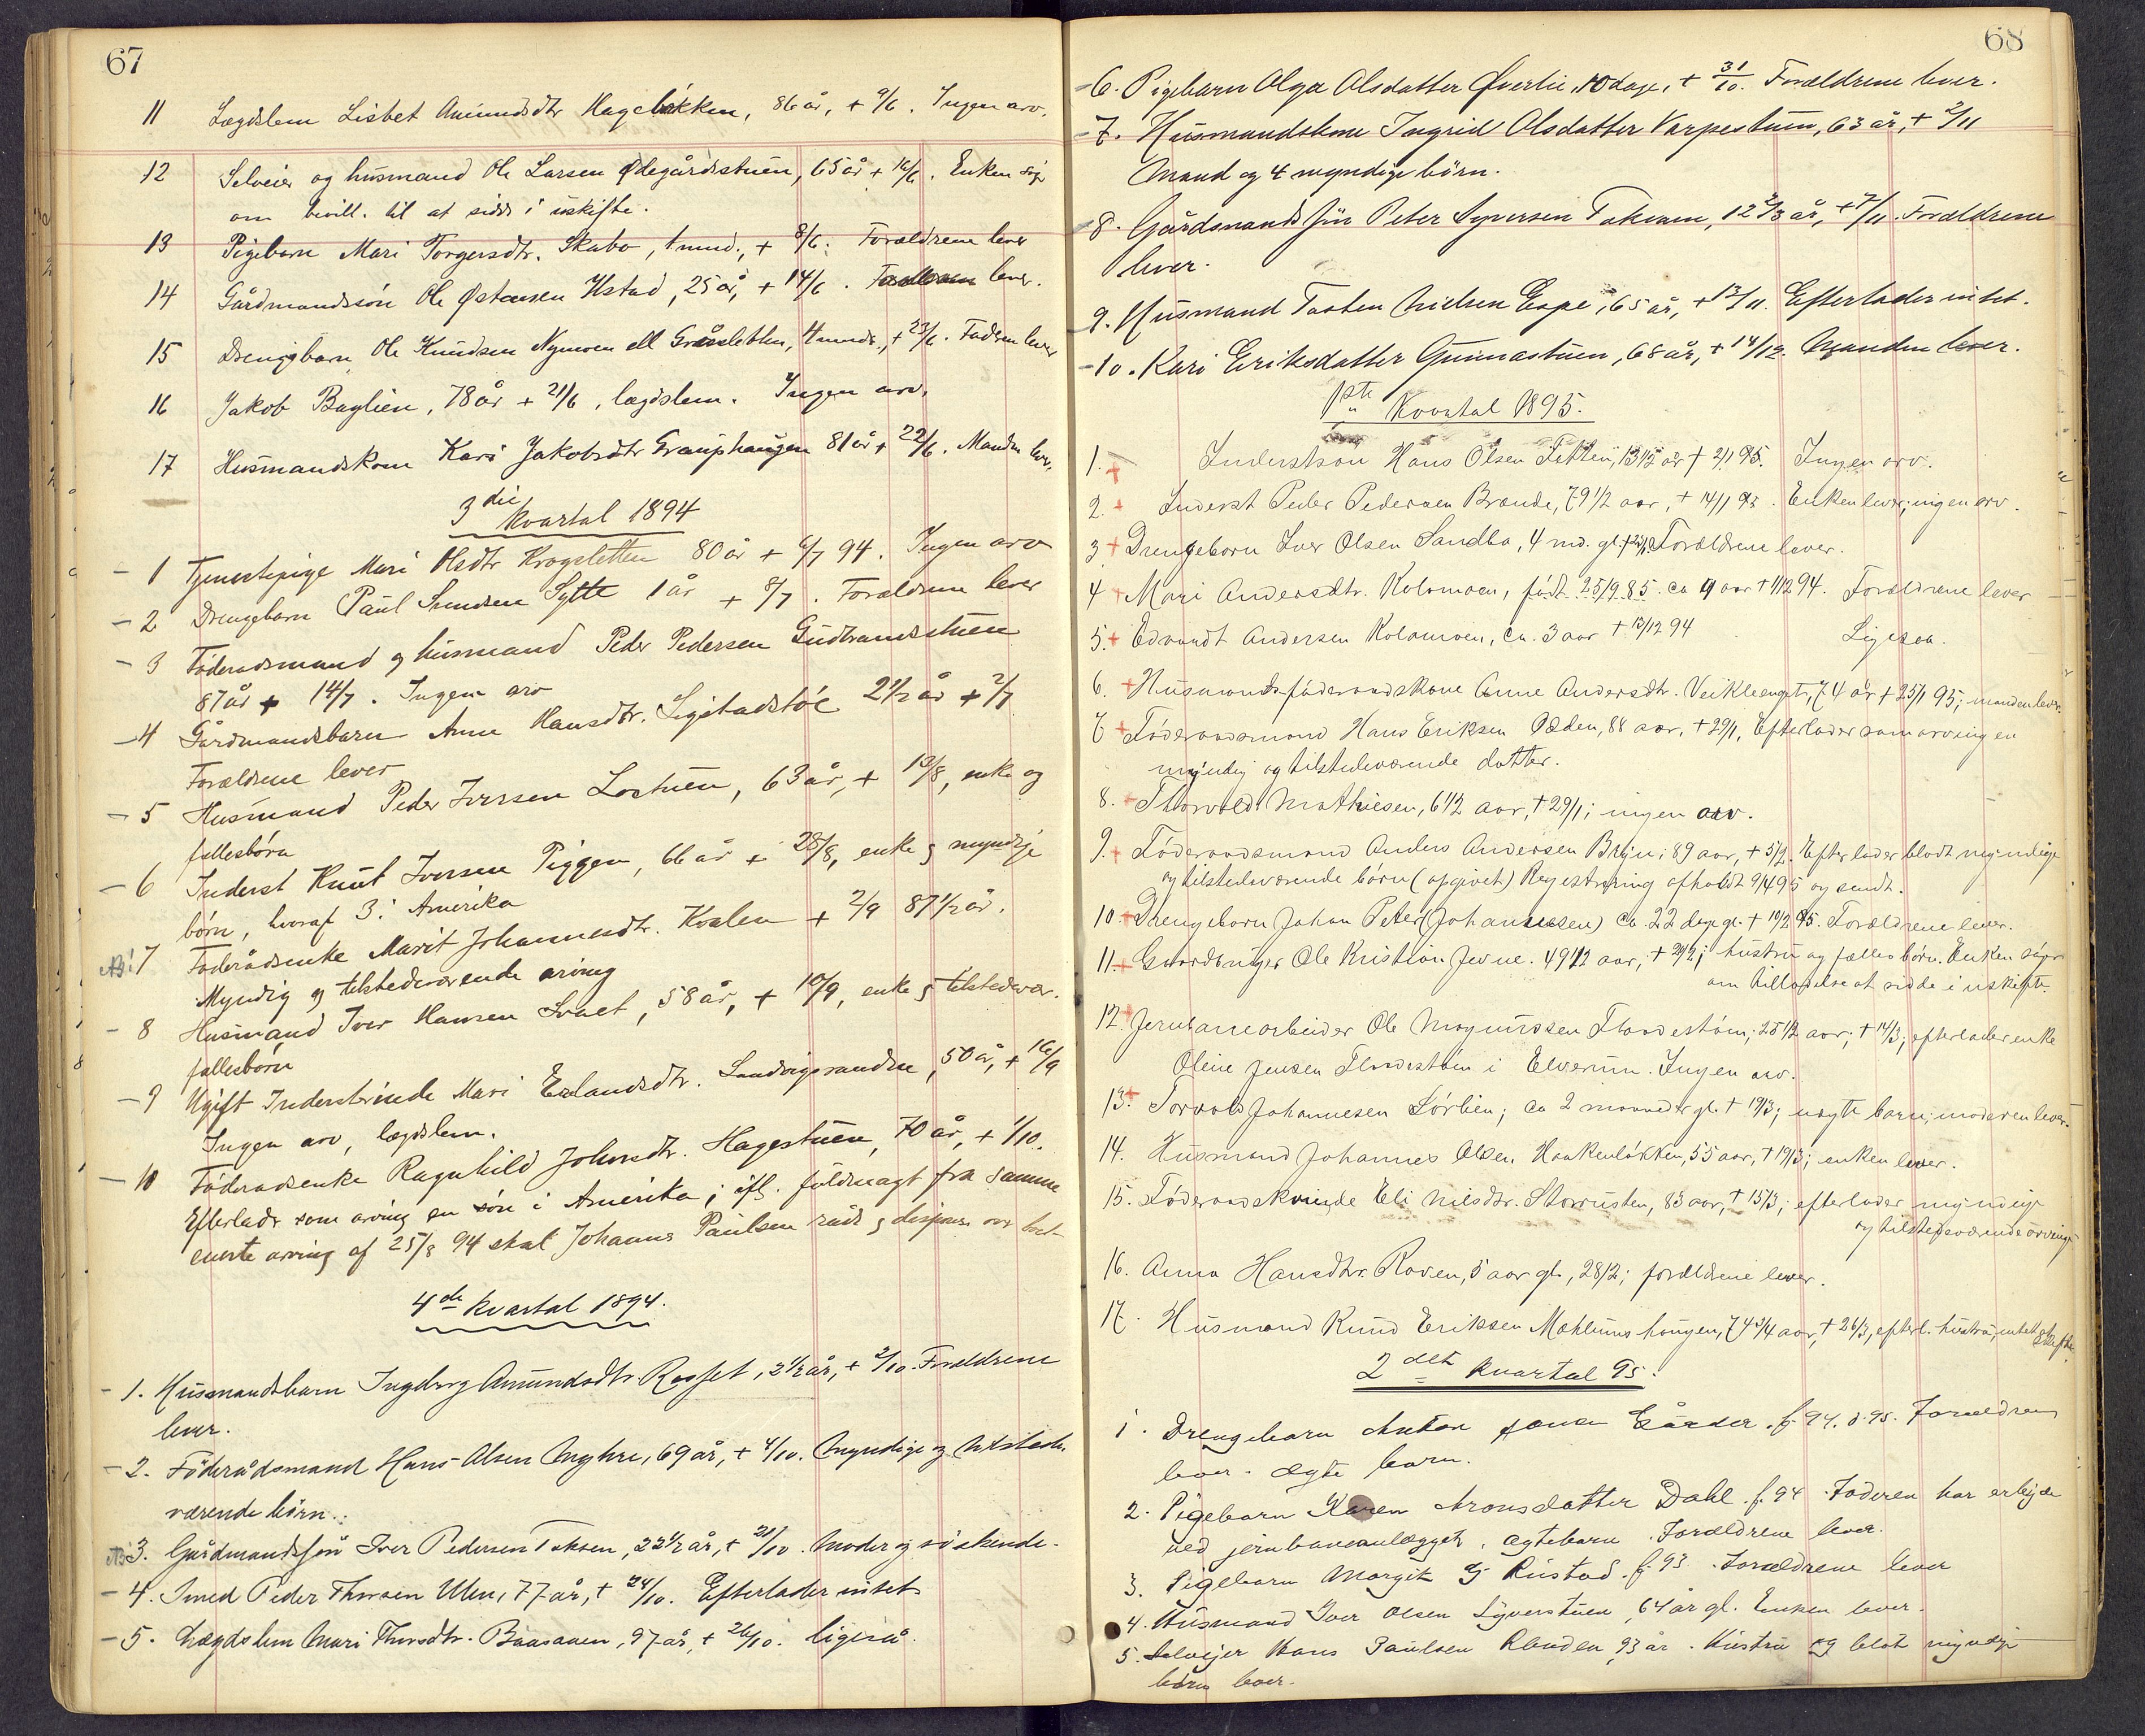 67
11 Lægdslem Lisbet Amundsdtr Hageløkken, 86 år, + 9/6. Ingen arv.
12 Selveier og husmand Ole Larsen Ødegårdstuen, 65 år + 16/6. Enken søger
om bevill. til at sidde i uskifte.
13 Pigebarn Mari Torgersdtr. Skabo, 1 mnd., + 8/6. Forældrene lever
14 Gårdmandssøn Ole Østensen Ustad, 25 år, + 14/6. lever.
15 Drengebarn Ole Knudsen Nymoen ell Græsletten, 4 mndr., + 23/6. Faderen lever
16 Jakob Baglien, 78 år + 21/6, lægdslem. Ingen arv.
17 Husmandskone Kari Jakobsdtr Grauphaugen 81 år + 22/6. Manden lever.
3die kvartal 1894
- 1 Tjenestepige Mari Olsdtr Krogsletten 80 år + 6/7 94. Ingen arv
- 2 Drengebarn Paul Svendsen Sylte 1 år + 8/7. Forældrene lever
- 3 Føderadsmand og husmand Peder Pedersen Gudbrandsstuen
87 år + 14/7. Ingen arv
- 4 Gårdmandsbarn Anne Hansdtr. Sigstadstøe 2 1/2 år + 2/7
Forældrene lever
- 5 Husmand Peder Iversen Lostuen, 63 år, + 13/8, enke og
fællesbørn
- 6 Inderst Knut Iversen Piggen, 66 år + 28/8, enke og myndige
børn, hvoraf 3 i Amerika
NB! 7 Føderådsenke Marit Johannesdtr. Kvalen + 2/9 87 1/2 år.
Myndig og tilstedeværende arving
- 8 Husmand Iver Hansen Svaet, 58 år, + 10/9, enke og tilstedevær.
fællesbørn
- 9 Ugift Inderstkvinde Mari Erlandsdtr. Sandvigsranden, 50 år, + 16/9
Ingen arv, lægdslem.
- 10 Føderadsenke Ragnhild Johnsdtr. Hagestuen, 70 år, + 1/10.
Efterlader som arving en søn i Amerika; ifl. fuldmagt fra samme
eneste arving af 25/8 94 skal Johannes Paulsen råde og disponere over boet
4de kvartal 1894.
- 1. Husmandsbarn Ingeborg Amundsdtr Rosset, 2 1/2 år, + 2/10. Forældrene
lever.
- 2. Føderådsmand Hans Olsen Myhre, 69 år, + 4/10. Myndige og tilstede-
værende børn.
NB 3. Gårdmandssøn Iver Pedersen Toksen, 22 1/2 år, + 21/10. Moder og søskende.
- 4. Peder Thorsen Ulen, 77 år, + 24/10. Efterlader intet
- 5. Lægdslem Mari Thorsdtr. Baasaaen, 97 år, + 26/10. ligeså.
68
- 6. Pigebarn Olga Olsdatter Øverlie, 10 dage, + 31/10. Forældrene lever.
- 7. Husmandskone Ingrid Olsdatter Varpestuen, 63 år, + 2/11
Mand og 4 myndige børn.
- 8. Gårdmands søn Peter Syversen Tokvam, 12 2/3 år, + 7/11. Forældrene
lever.
- 9. Husmand Torsten Nielsen Espe, 65 år, + 12/11. Efterlader intet.
- 10. Kari Eriksdatter Gunnastuen, 68 år, + 14/12. Manden lever.
1ste Kvartal 1895.
1. Inderstsøn Hans Olsen Letten, 13 1/2 år + 2/1 95. Ingen arv.
2. Inderst Peder Pedersen Brande, 79 1/2 aar, + 14/1 95. Enken lever; ingen arv.
3 Drengebarn Iver Olsen Sandbo, 4 md. gl. Forældrene lever.
4 Mari Andersdtr. Kolomoen, født 25/9 85. ca 9 aar + 11/12 94. Forældrene lever
5. Edvardt Andersen Kolomoen, ca. 3 aar + 12/12 94 Ligesaa.
6. Husmands føderaadskone Anne Andersdtr. Veikleenget, 74 år + 25/1 95; manden lever.
7 Føderaadsmand Hans Eriksen Odden, 88 aar, + 29/1. Efterlader som arving en
myndig og tilstedeværende datter.
8. Thorvald Mathiesen, 6 1/2 aar, + 29/1; ingen arv.
9. Føderaadsmand Anders Andersen Bryn; 89 aar, + 5/2. Efterlader blodt myndige
og tilstedeværende børn (opgivet) Registrering afholdt 9/4 95 og sendt.
10. Drengebarn Johan Peter (Johannessen) ca. 22 dage gl. + 10/2 95. Forældrene lever.
11. Gaardbruger Ole Kristian Jevne. 49 1/2 aar; + 24/2; hustru og fælles børn. Enken søger
om tilladelse at sidde i uskifte.
12. Jernbanearbeider Ole Magnussen Flaadestøm; 28 1/2 aar; + 14/3; efterlader enke
Oline Jensen Flaadestøm i Elverum. Ingen arv.
13. Torvald Johannesen Sørlien; ca 2 maaneder gl. + 19/3; uægte barn; moderen lever.
14. Husmand Johannes Olsen Haakenløkken, 55 aar, + 19/3; enken lever.
15. Føderaadskvinde Eli Nilsdtr. Storrusten, 83 aar, + 15/3; efterlader myndige
og tilstedeværende arvinger
16. Anna Hansdtr. Roven, 5 aar gl., 28/2; forældrene lever.
17. Husmand Knud Eriksen Mæhlumshaugen, 74 3/4 aar, + 26/3, efterl. hustru, intet at skifte.
2det kvartal 95.
1. Drengebarn Anton Gårder. f. 94. d. 95. Forældrene
lever. ægte barn.
2. Pigebarn Karen Aronsdatter Dahl. f. 94. Faderen har arbejde
ved jernbaneanlægget. ægtebarn. Forældrene lever.
3. Pigebarn Margit G Rustad. f. 93. Forældrene lever
4. Husmand Iver Olsen Syverstuen, 64 år gl. Enken lever.
5. Selvejer Hans Paulsen Randen, 93 år. Hustru og blot myndige
børn lever.